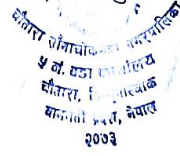 चौतारा साँगाचोकगढी नगरपालिका
५ नं. वडा कार्यालय
चौतारा, सिन्धुपाल्चोक
बागमती प्रदेश, नेपाल
२०७३